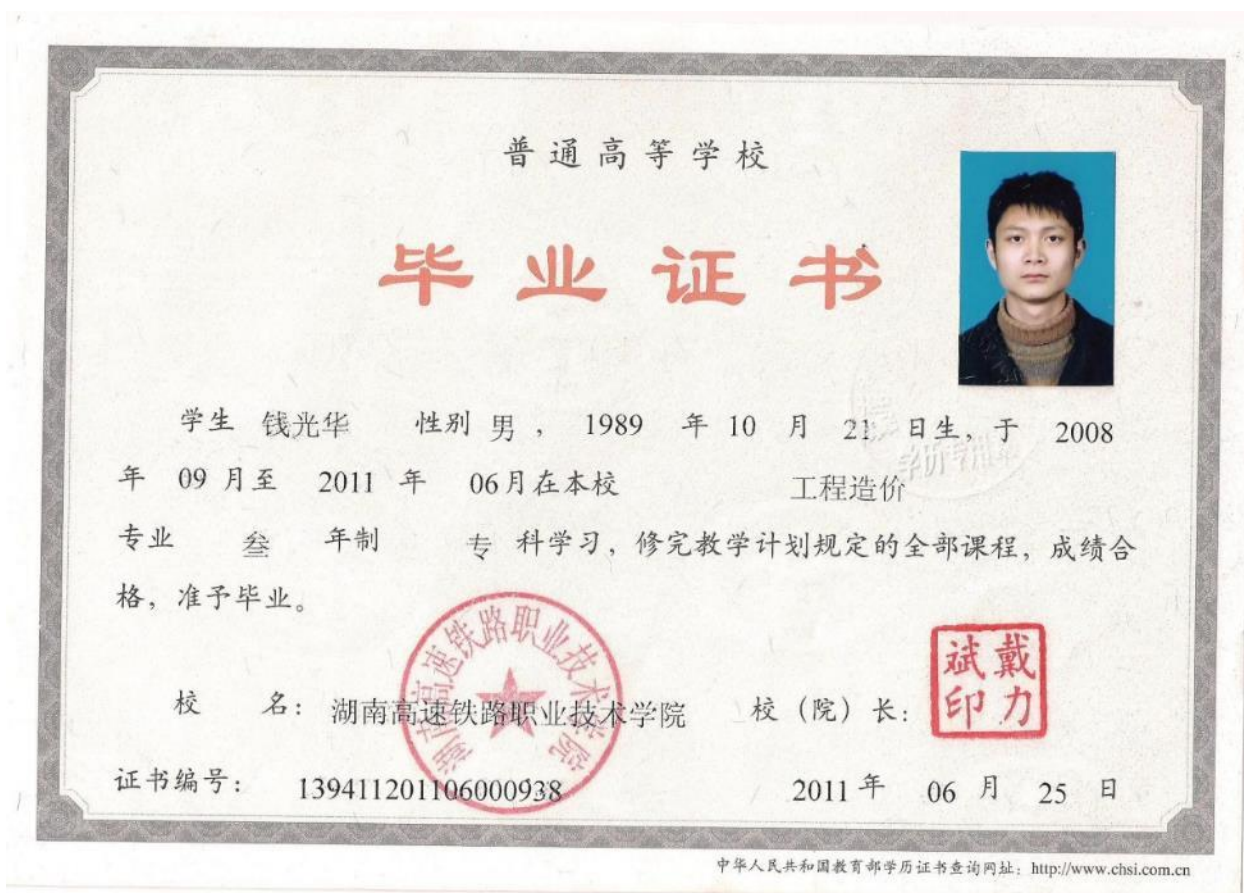 普通高等学校
毕业证书
学生 钱光华 性别 男 ， 1989 年 10 月 21 日生，于 2008
年 09 月至 2011 年 06月在本校 工程造价
专业 叁 年制 专 科学习，修完教学计划规定的全部课程，成绩合
格，准予毕业。
校 名：湖南高速铁路职业技术学院 校（院）长：
戴力斌印
湖南高速铁路职业技术学院
证书编号： 139411201106000938 2011 年 06 月 25 日
中华人民共和国教育部学历证书查询网址：http://www.chsi.com.cn